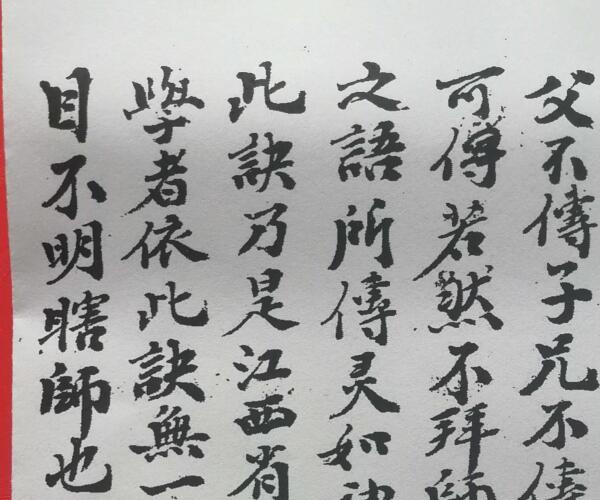 父不傳子兄不傳
可傳若然不拜師
之語所傳灵如神
此訣乃是江西省
學者依此訣無一
目不明瞎師也